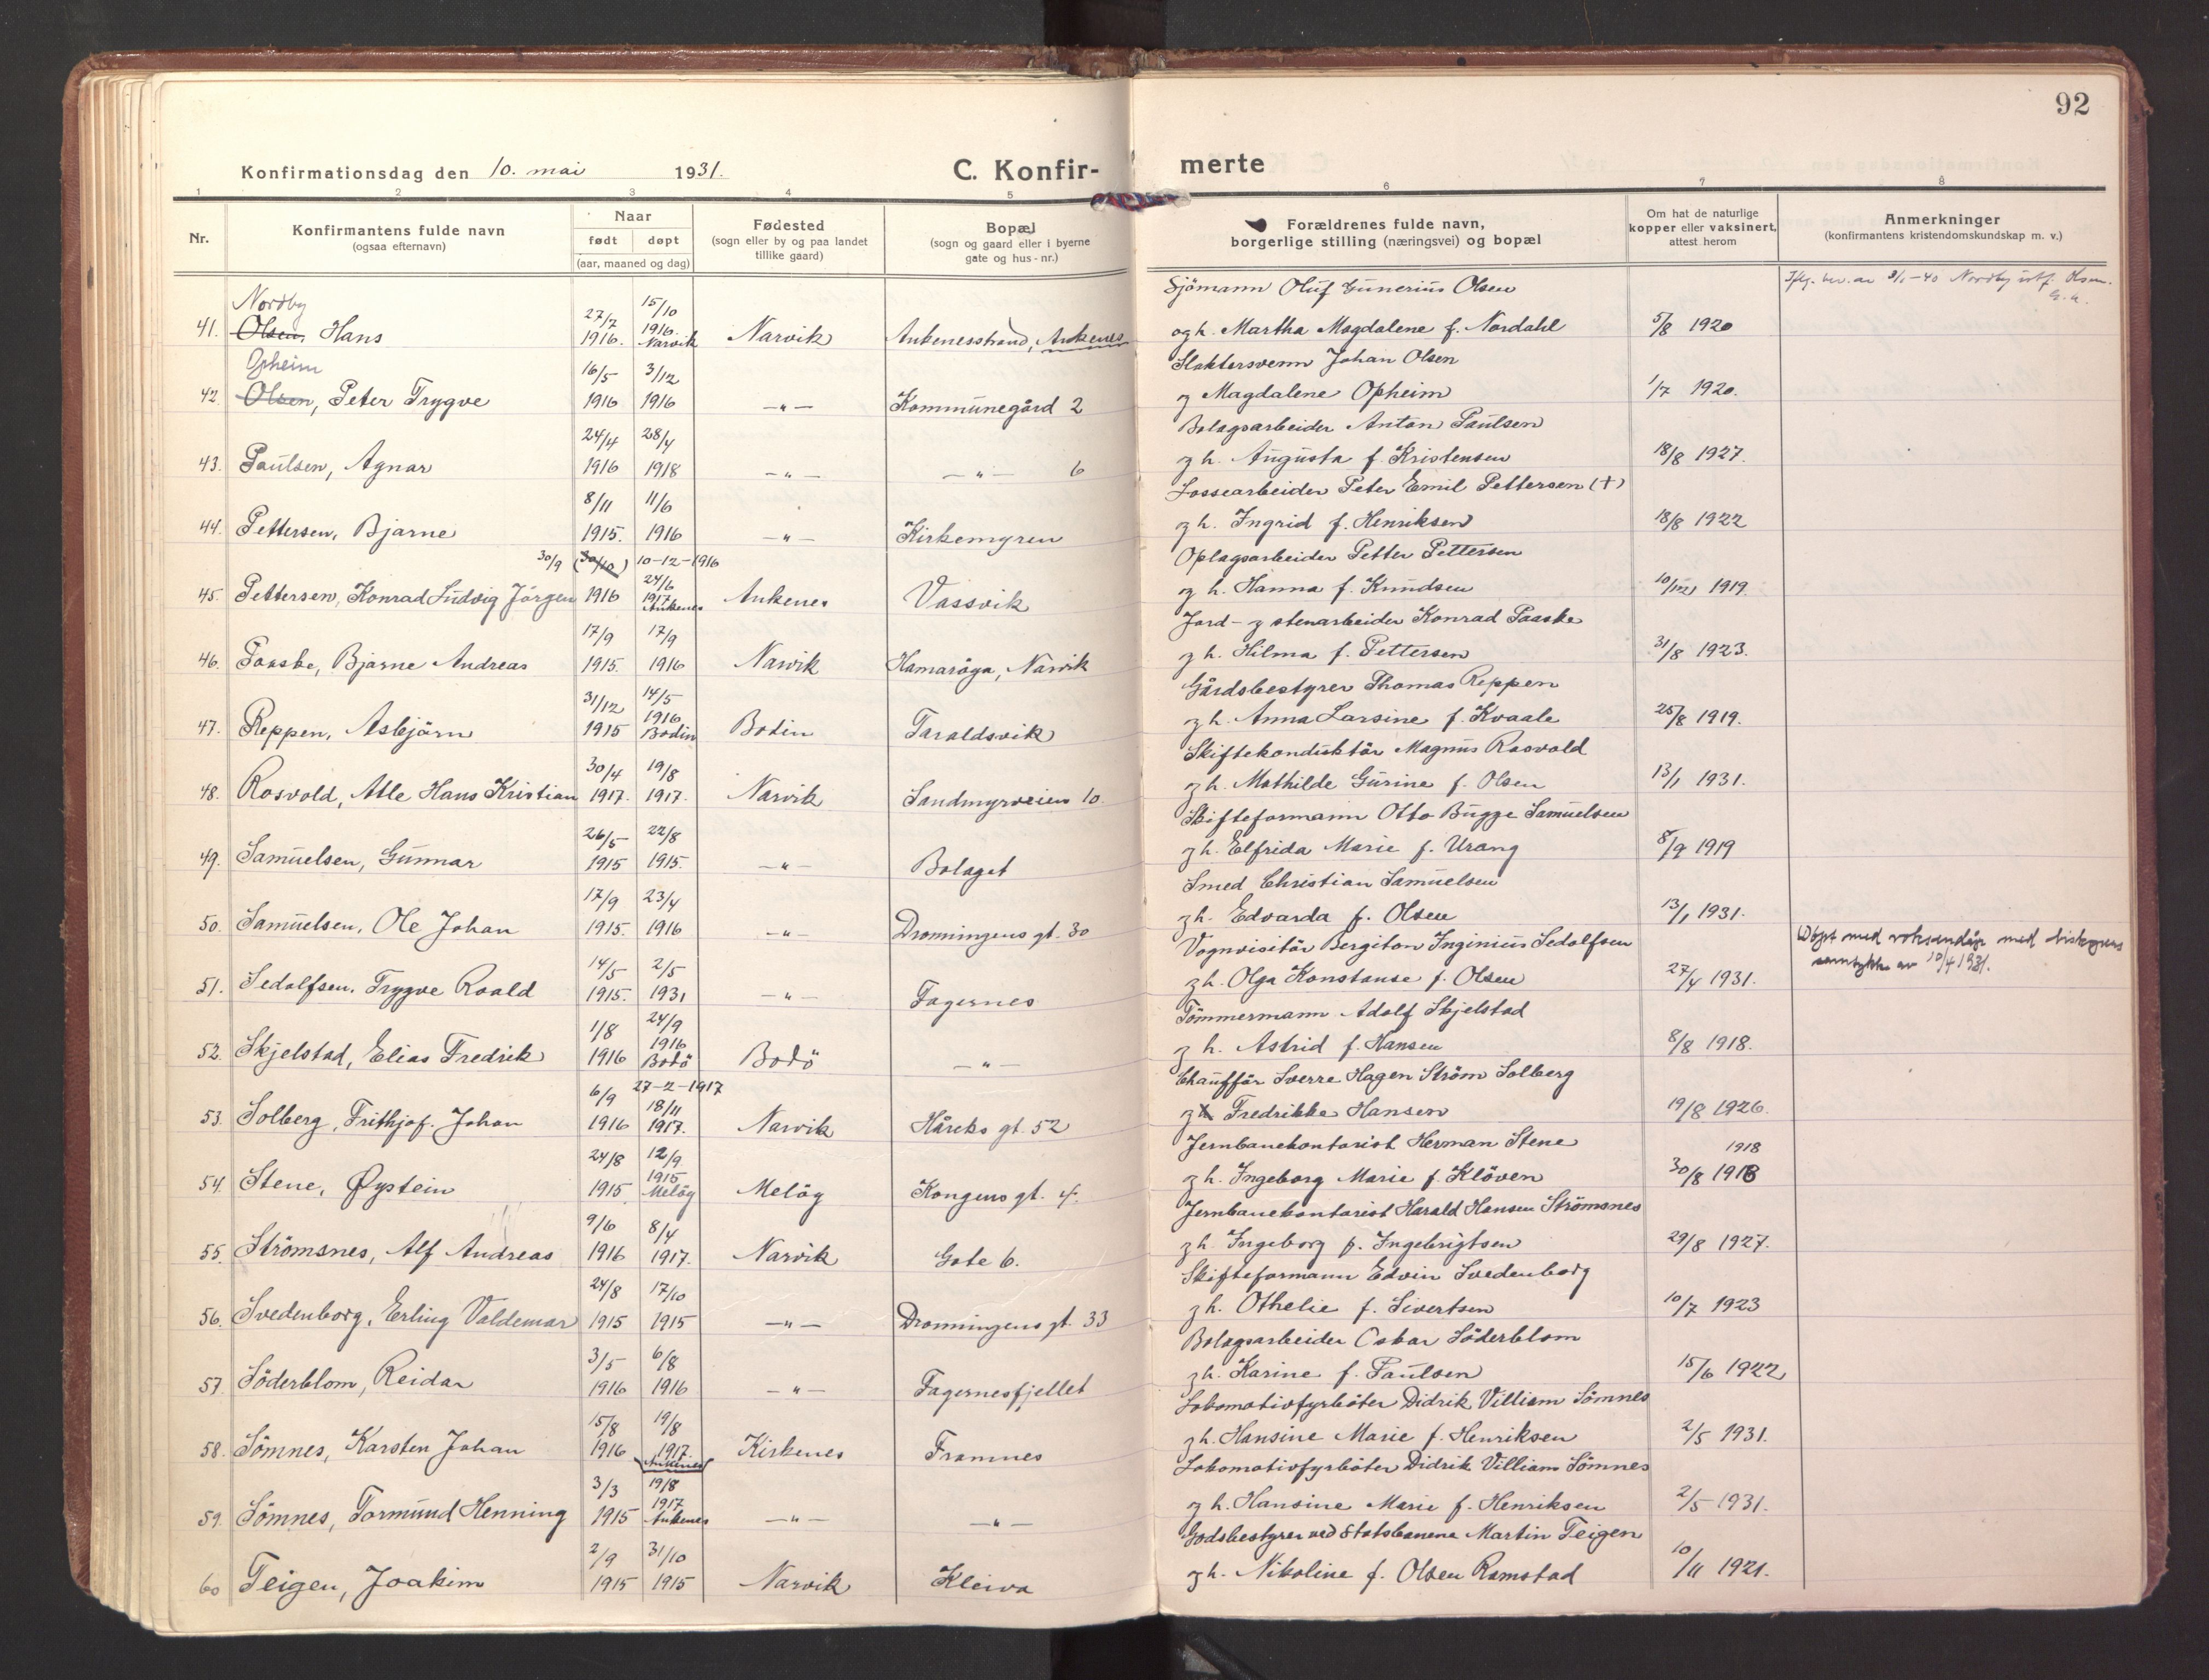 92
Konfirmationsdag den 10. mai 1931.
C. Konfir-
merte
1 2 3 4 5 6 7 8
Nr.
Konfirmantens fulde navn
(ogsaa efternavn)
Naar
født døpt
(aar, maaned og dag)
Fødested
(sogn eller by og paa landet
tillike gaard)
Bopæl
(sogn og gaard eller i byerne
gate og hus-nr.)
Forældrenes fulde navn,
borgerlige stilling (næringsvei) og bopæl
Om hat de naturlige
kopper eller vaksinert,
attest herom
Anmerkninger
(konfirmantens kristendomskundskap m. v.)
Nordby 27/7 15/10 1916. Sjömann Oluf Gunerius Olsen
41. Olsen, Hans 1916. Narvik Narvik Ankenesstrand, Ankenes og h. Martha Magdalene f. Nordahl 5/8 1920
Opheim 16/5 3/12 Slaktersvenn Johan Olsen
42. Olsen, Peter Trygve 1916 1916 —"— Kommunegård 2 og Magdalene Opheim 1/7 1920.
24/4 28/4 Bolagsarbeider Anton Paulsen
43. Paulsen, Agnar 1916 1918 —"— —"— 6 og h. Augusta f. Kristensen 18/8 1927.
8/11 11/6 Lossearbeider Peter Emil Pettersen (†)
44. Pettersen, Bjarne 1915. 1916 —"— Kirkemyren og h. Ingrid f. Henriksen 18/8 1922
30/9 (30/10) 10-12-1916 24/6 Oplagsarbeider Petter Pettersen
45. Pettersen, Konrad Ludvig Jörgen 1916 1917 Ankenes Ankenes Vassvik og h. Hanna f. Knudsen 10/12 1919.
17/9 17/9 Jord- og stenarbeider Konrad Paaske
46. Paaske, Bjarne Andreas 1915. 1916 Narvik Hamaröga, Narvik og h. Hilma f. Pettersen 31/8 1923.
31/12 14/5 1916 Gårdsbestyrer Thomas Reppen
47. Reppen, Asbjörn 1915 Bodin Bodin Taraldsvik og h. Anna Larsine f. Kvaale 25/8 1919.
30/4 19/8 Skiftekonduktör Magnus Rosvold
48. Rosvold, Atle Hans Kristian 1917. 1917. Narvik Sandmyrveien 10. og h. Mathilde Gurine f. Olsen 13/1 1931.
26/5 22/8 Skifteformann Otto Bugge Samuelsen
49. Samuelsen, Gunnar 1915 1915. —"— Bolaget og h. Elfrida Marie f. Urang 8/9 1919
17/9 23/4 Smed Christian Samuelsen
50. Samuelsen, Ole Johan 1915. 1916 —"— Dronningens gt. 30 og h. Edvarda f. Olsen 13/1 1931.
14/5 2/5 Vognvisitör Bergiton Inginius Sedolfsen Döpt med voksendåp med biskopens
51. Sedolfsen, Trygve Roald 1915. 1931 —"— Fagernes og h. Olga Konstanse f. Olsen 27/4 1931. samtykke av 10/4 1931.
1/8 24/9 1916 Tömmermann Adolf Skjelstad
52. Skjelstad, Elias Fredrik 1916 Bodö Bodö —"— og h. Astrid f. Hansen 8/8 1918.
6/9 27-2-1917 18/11 Chaufför Sverre Hagen Ström Solberg
53. Solberg, Frithjof Johan 1916 1917. Narvik Håreks gt. 52 og Fredrikke Hansen 19/8 1926.
24/8 12/9 1915 Jernbanekontorist Herman Stene 1918
54. Stene, Øystein 1915 Melöy Melöy Kongens gt. 4. og h. Ingeborg Marie f. Klöven 30/8 1918
9/6 8/4 Jernbanekontorist Harald Hansen Strömsnes
55. Strömsnes, Alf Andreas 1916 1917. Narvik Gate 6. og h. Ingeborg f. Ingebrigtsen 29/8 1927.
24/8 17/10 Skifteformann Edvin Svedenborg
56. Svedenborg, Erling Valdemar 1915 1915 —"— Dronningens gt. 33 og h. Othelie f. Sivertsen 10/7 1923
3/5 6/8 Bolagsarbeider Oskar Söderblom
57. Söderblom, Reidar 1916 1916 —"— Fagernesfjellet og h. Karine f. Paulsen 15/6 1922
15/8 19/8 Lokomotivfyrböter Didrik Villiam Sömnes
58. Sömnes, Karsten Johan 1916 1917. Ankenes Kirkenes Framnes og h. Hansine Marie f. Henriksen 2/5 1931.
3/3 19/8 1917 Lokomotivfyrböter Didrik Villiam Sömnes
59. Sömnes, Tormund Henning 1915 Ankenes —"— —"— og h. Hansine Marie f. Henriksen 2/5 1931.
2/9 31/10 Godsbestyrer ved Statsbanene Martin Teigen
60 Teigen, Joakim 1915 1915 Narvik Kleiva og h. Nikoline f. Olsen Ramstad 10/11 1921.